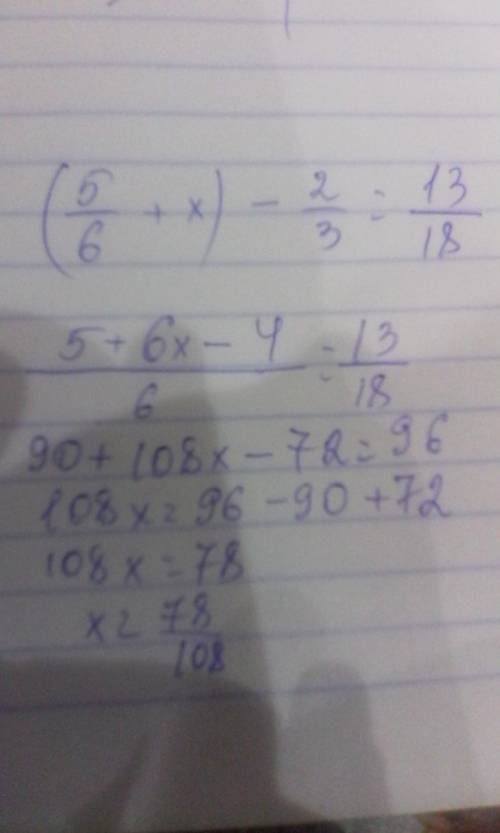 (5/6 + x) - 2/3 = 13/18
5 + 6x - 4 / 6 = 13/18
90 + 108x - 72 = 96
108x = 96 - 90 + 72
108x = 78
x = 78/108